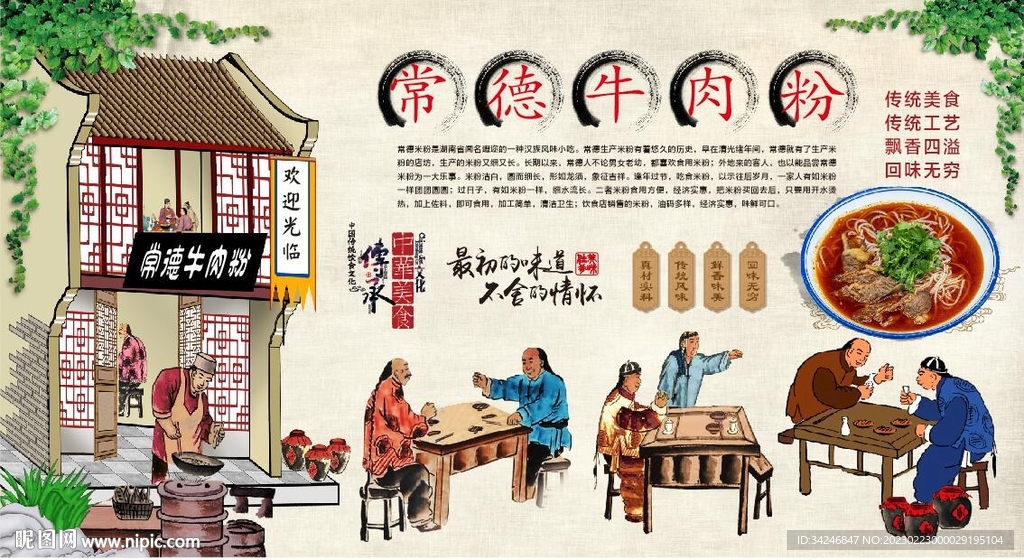 常德牛肉粉
传统美食
传统工艺
飘香四溢
回味无穷
常德米粉是湖南省闻名遐迩的一种汉族风味小吃。常德生产米粉有着悠久的历史，早在清光绪年间，常德就有了生产米
粉的店坊，生产的米粉又细又长。长期以来，常德人不论男女老幼，都喜欢食用米粉；外地来的客人，也以能品尝常德
米粉为一大乐事。米粉洁白，圆而细长，形如龙须，象征吉祥。逢年过节，吃食米粉，以示往后岁月，一家人有如米粉
一样团团圆圆；过日子，有如米粉一样，细水流长。二者米粉食用方便，经济实惠，把米粉买回去后，只要用开水烫
热，加上佐料，即可食用，加工简单，清洁卫生；饮食店销售的米粉，油码多样，经济实惠，味鲜可口。
欢迎光临
常德牛肉粉
中国传统饮食文化
传承
中华美食
文化
最初的味道
不舍的情怀
真材实料
传统风味
鲜香味美
回味无穷
昵图网 www.nipic.com
ID:34246847 NO:20230223000029195104